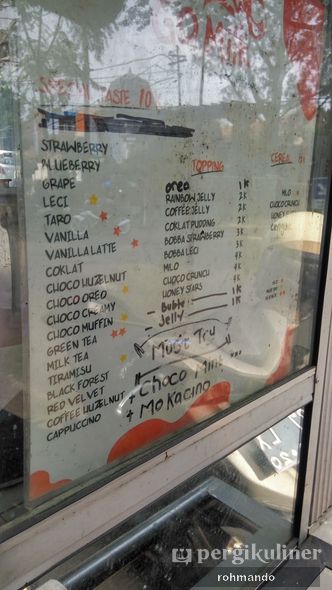 TASTE 10
STRAWBERRY
BLUEBERRY
GRAPE
LECI
TARO
VANILLA
VANILLA LATTE
COKLAT
CHOCO HUZELNUT
CHOCO OREO
CHOCO CREAMY
CHOCO MUFFIN
GREEN TEA
MILK TEA
TIRAMISU
BLACK FOREST
RED VELVET
COFFEE HUZELNUT
CAPPUCCINO
TOPPING
oreo 1K
RAINBOW JELLY 2K
COFFEE JELLY 2K
COKLAT PUDDING 2K
BOBBA STRAWBERRY 3K
BOBBA LECI 3K
MILO 4K
CHOCO CRUNCH 4K
HONEY STARS 4K
- Buble 1K
- Jelly 1K
Must Try
+ Choco Mint
+ Mokacino
CEREAL
MILO
CHOCO CRUNCH
HONEY STARS
pergikuliner
rohmando